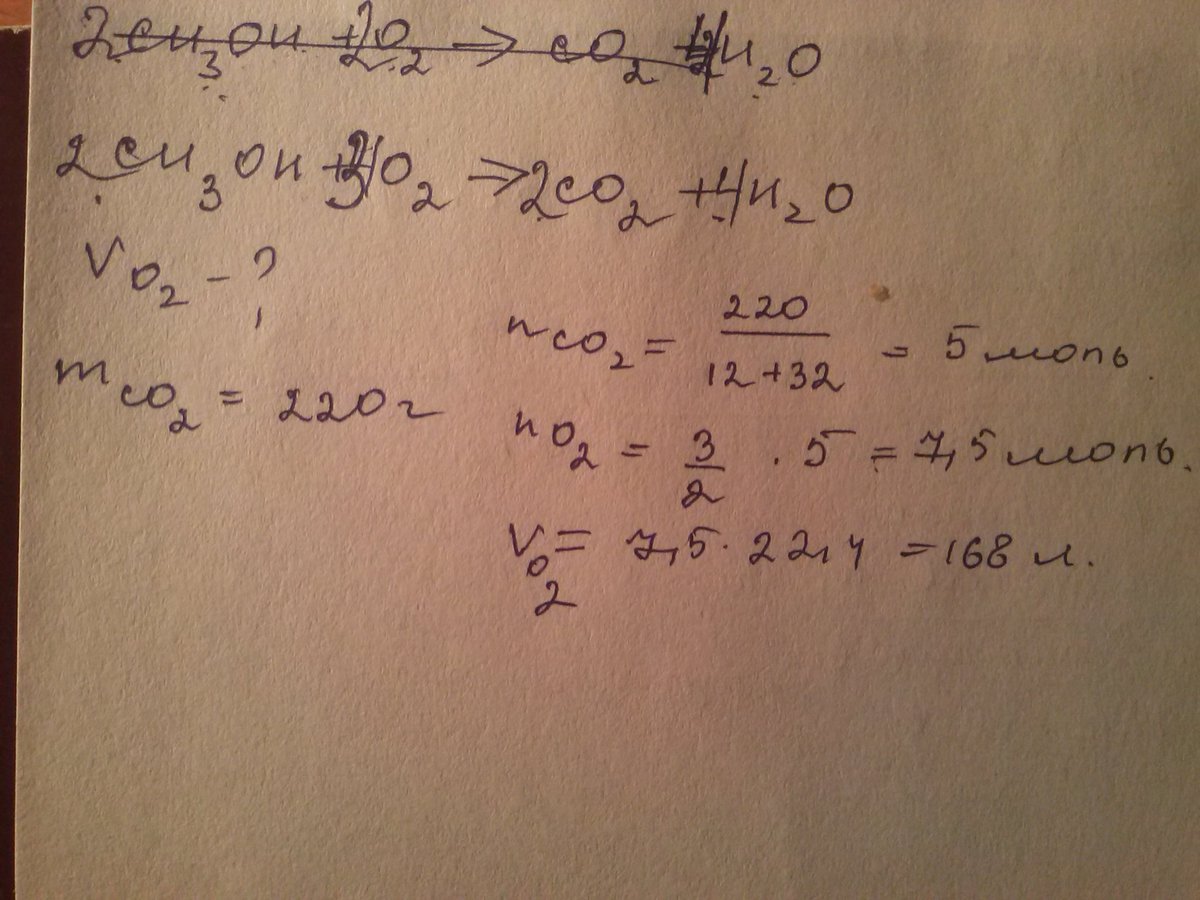 2CH₃OH + 2O₂ ⇒ CO₂ + H₂O
2CH₃OH + 3O₂ ⇒ 2CO₂ + 4H₂O
V O₂ - ?
m CO₂ = 220 г
n CO₂ = 220 / (12+32) = 5 моль.
n O₂ = 3/2 · 5 = 7,5 моль.
V O₂ = 7,5 · 22,4 = 168 л.